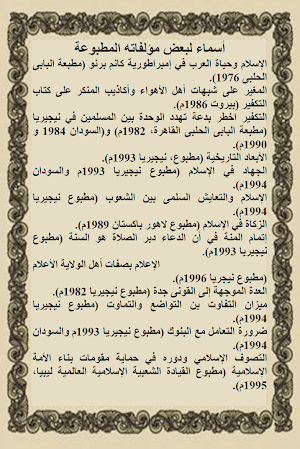 أسماء لبعض مؤلفاته المطبوعة
الإسلام وحياة العرب في إمبراطورية كانم برنو (مطبعة البابى
الحلبى 1976).
المغير على شبهات أهل الأهواء وأكاذيب المنكر على كتاب
التكفير (بيروت 1986م).
التكفير أخطر بدعة تهدد الوحدة بين المسلمين في نيجيريا
(مطبعة البابى الحلبي القاهرة، 1982م) و(السودان 1984 و
1990م).
الأبعاد التاريخية (مطبوع، نيجيريا 1993م).
الجهاد في الإسلام (مطبوع نيجيريا 1993م والسودان
1994م).
الإسلام والتعايش السلمى بين الشعوب (مطبوع نيجيريا
1994م).
الزكاة في الإسلام (مطبوع لاهور باكستان 1989م).
إتمام المنة في أن الدعاء دبر الصلاة هو السنة (مطبوع
نيجيريا 1993م).
الإعلام بصفات أهل الولاية الأعلام
(مطبوع نيكريا 1996م).
العدة الموجهة إلى القونى جدة (مطبوع نيجيريا 1982م).
ميزان التفاوت بن التواضع والتماوت (مطبوع نيجيريا
1994م).
ضرورة التعامل مع البنوك (مطبوع نيجيريا 1993م والسودان
1994م).
التصوف الإسلامي ودوره في حماية مقومات بناء الأمة
الإسلامية (مطبوع القيادة الشعبية الإسلامية العالمية ليبيا،
1995م).